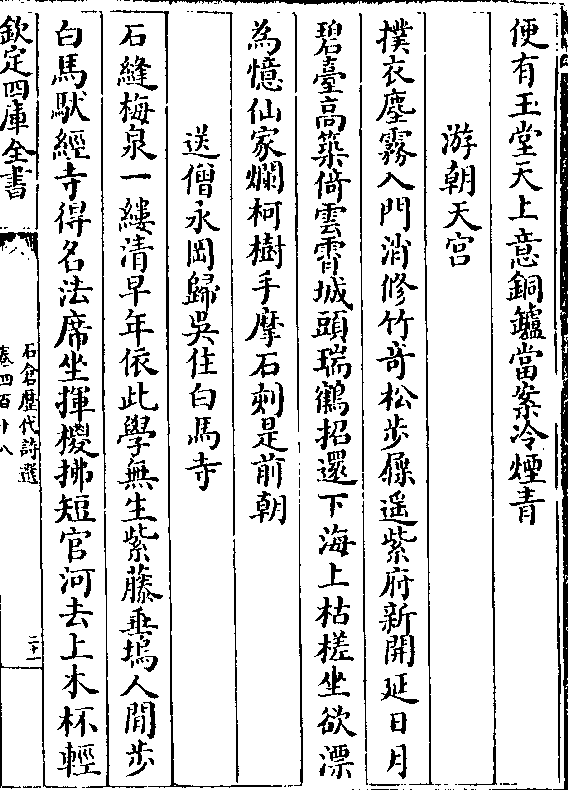 便有玉堂天上意銅鑪當案冷煙青
游朝天宫
撲衣塵霧入門消修竹竒松步屧遥紫府新開延日月
碧臺髙築倚雲霄城頭瑞鶴招還下海上枯槎坐欲漂
為憶仙家爛柯樹手摩石刻是前朝
送僧永岡歸吳住白馬寺
石縫梅泉一縷清早年依此學無生紫藤垂塢人間步
白馬䭾經寺得名法席坐揮椶拂短官河去上木杯輕
欽定四庫全書
石倉歴代詩選
卷四百十八
二十一